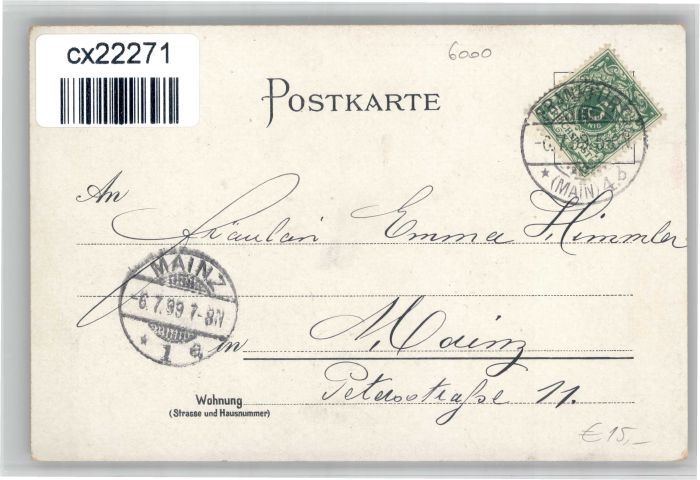 cx22271
6000
POSTKARTE
FRANKFURT
(MAIN) 4.b
An
Fräulein Emma Himmler
MAINZ
6.7.99 7-8N
* 1 a
in Mainz
Wohnung
(Strasse und Hausnummer)
Petersstraße 11.
€15,-